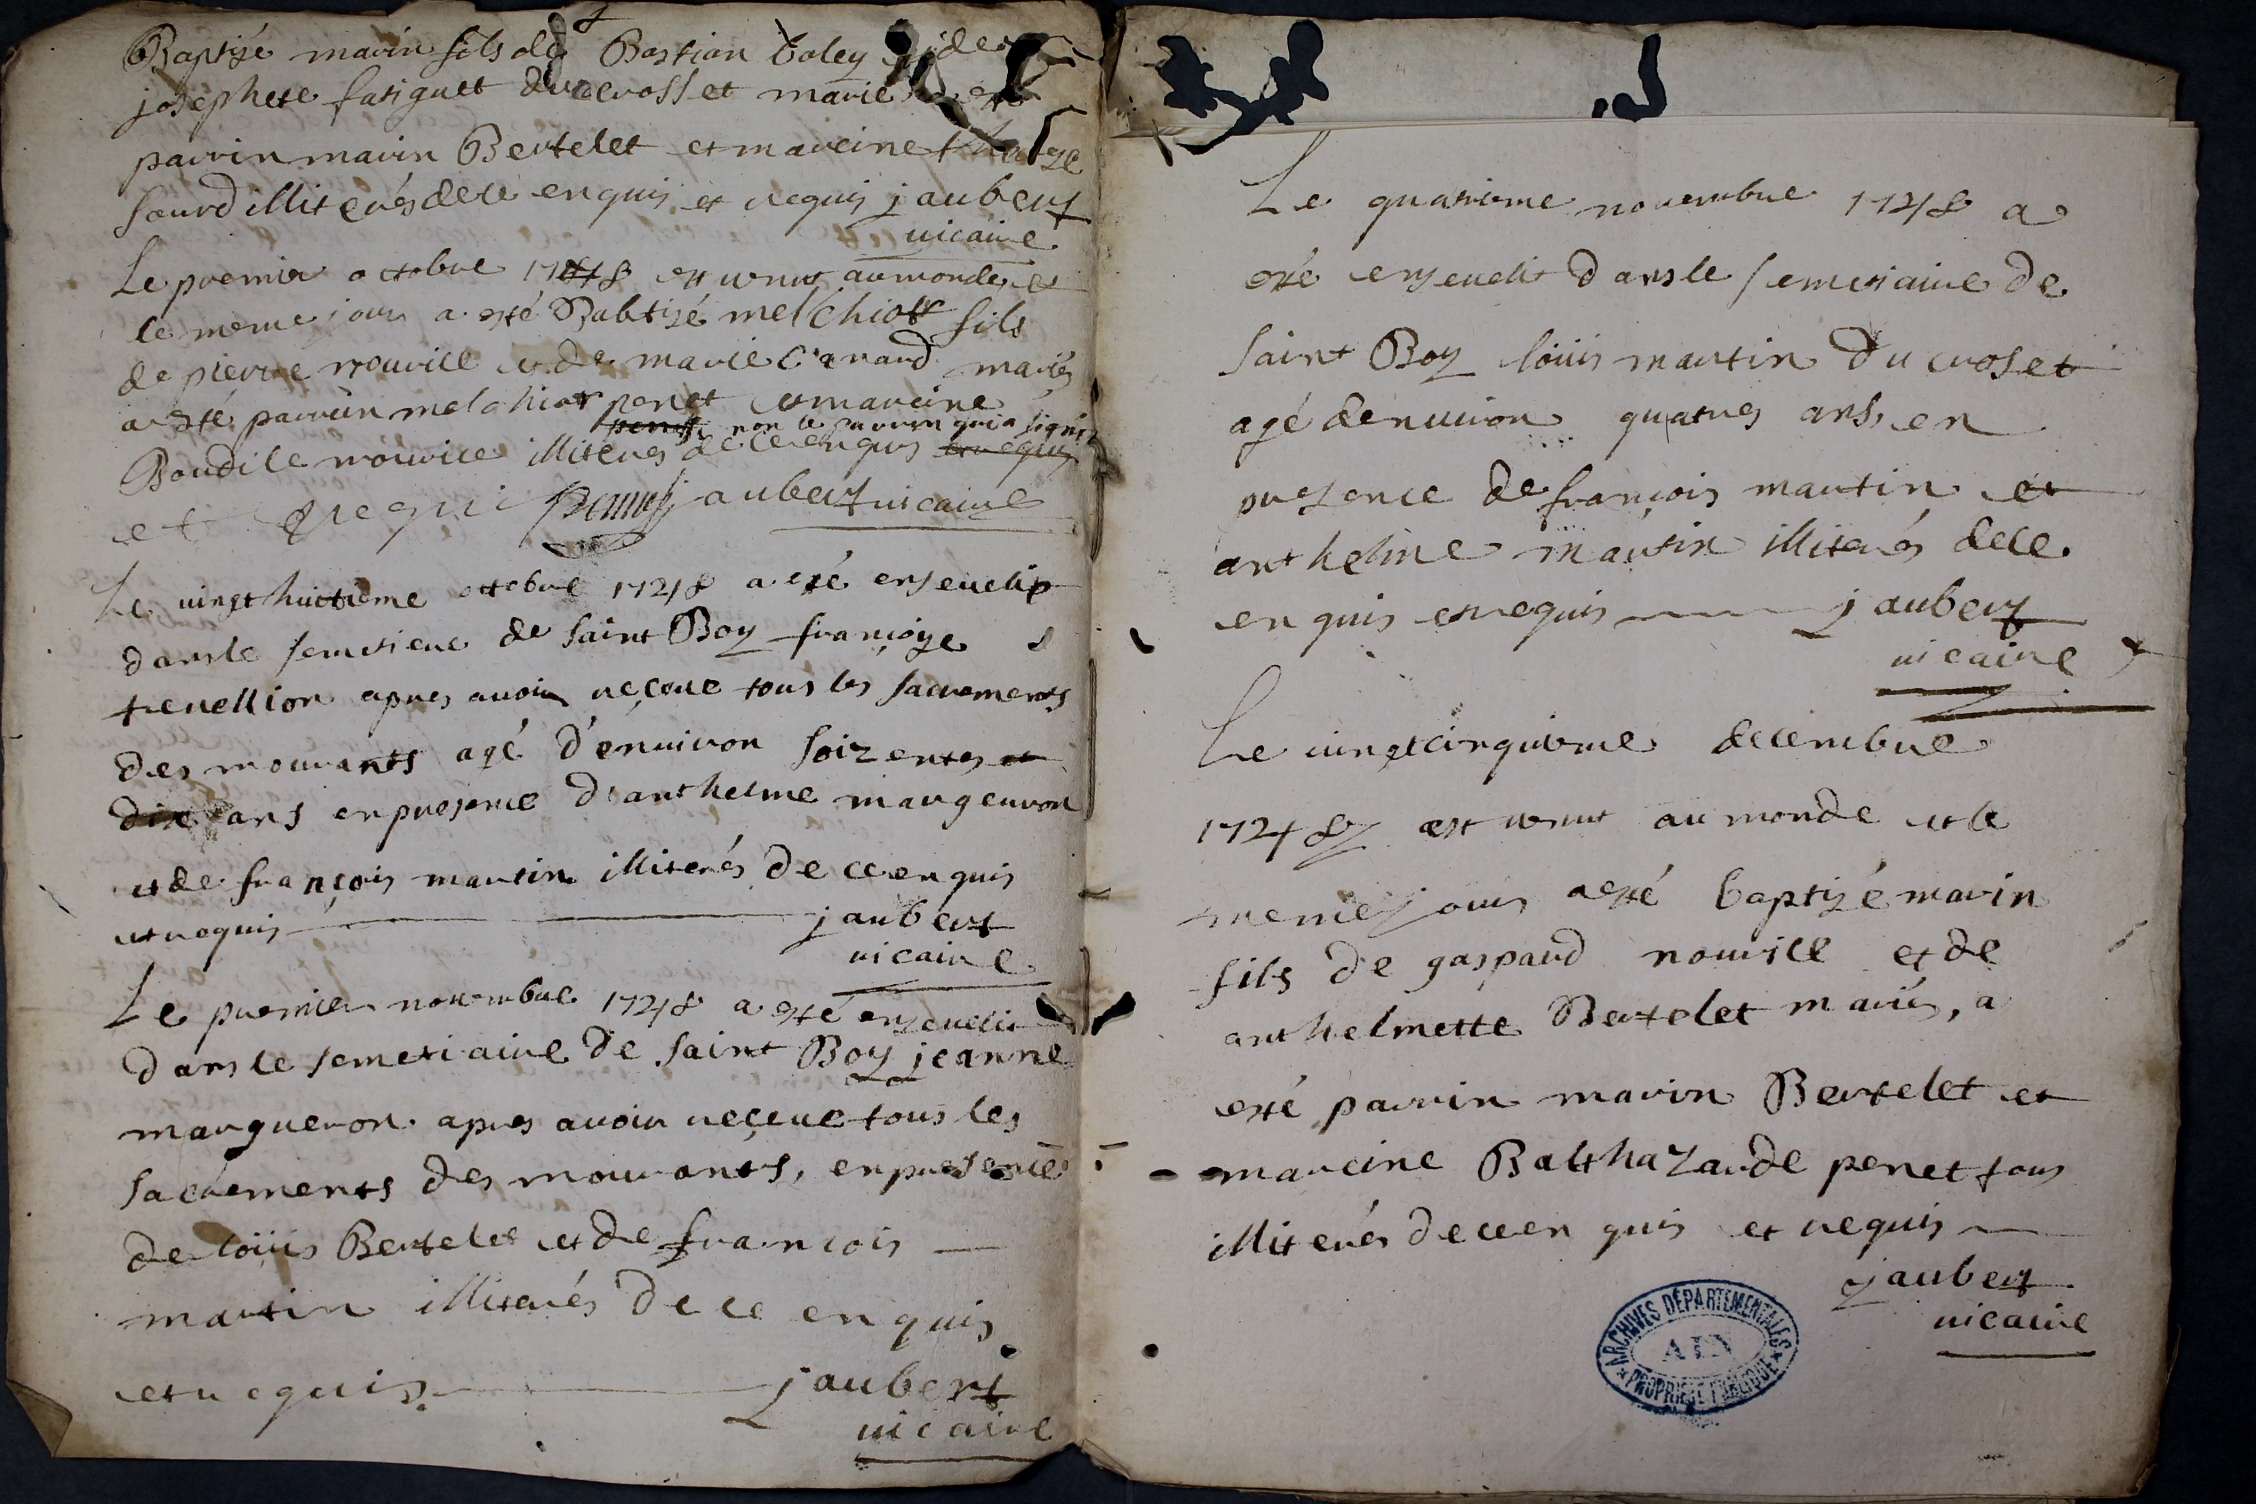 Baptizé marin fils de Bastian boley et de
josephete fatiguet du crosset mariés
parrin marin Bertelet et mareine
sourd illiterés de ce enquis et requis jaubert
vicaire
Le premier octobre 1748 est venut au monde et
le meme jour a esté Babtizé melchiott fils
de pierre mourice et de marie Cenand mariés
a esté parrain melchior penet et mareine
non le parrin qui a signé
Boudile mourice illiterés de ce enquis et requis
et requi penet jaubert vicaire
Le vingt huittieme octobre 1748 a eté ensevelit
dans le semetiere de saint Boy françoize
trevellion apres avoir reçeue tous les sacrements
des mourants agé d'environ soizentes et
dix ans en presence d'anthelme margeuron
et de françois martin illiterés de ce enquis
et requis jaubert
vicaire
Le premier novembre 1748 a esté ensevelit
dans le semetiaire de saint Boy jeanne
margueron apres avoir reçeue tous les
sacrements des mourants, en presence
de loüis Bertelet et de francois
martin illiterés de ce enquis
et requis. jaubert
vicaire
Le quatrieme novembre 1748 a
eté ensevelit dans le semetiaire de
saint Boy loüis martin du croset
agé denviron quatres anss en
presence de françois martin et
anthelme martin illiterés de ce
enquis et requis jaubert
vicaire
Le vingt cinquieme decembre
1748 est venut au monde et le
meme jour a esté baptizé marin
fils de gaspard mourice et de
anthelmette Bertelet mariés, a
esté parrin marin Bertelet et
mareine Balthazarde penet tous
illiterés de ce en quis et requis
jaubert
vicaire
ARCHIVES DÉPARTEMENTALES
AIN
PROPRIÉTÉ PUBLIQUE